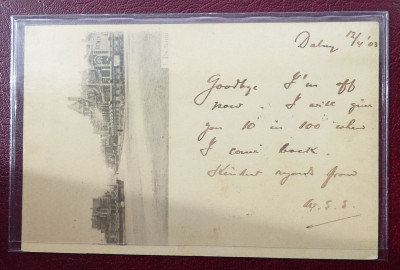 Dalny 12/4 '02
Goodbye I'm off
now. I will give
you 10 in 100 when
I come back.
Kindest regards from